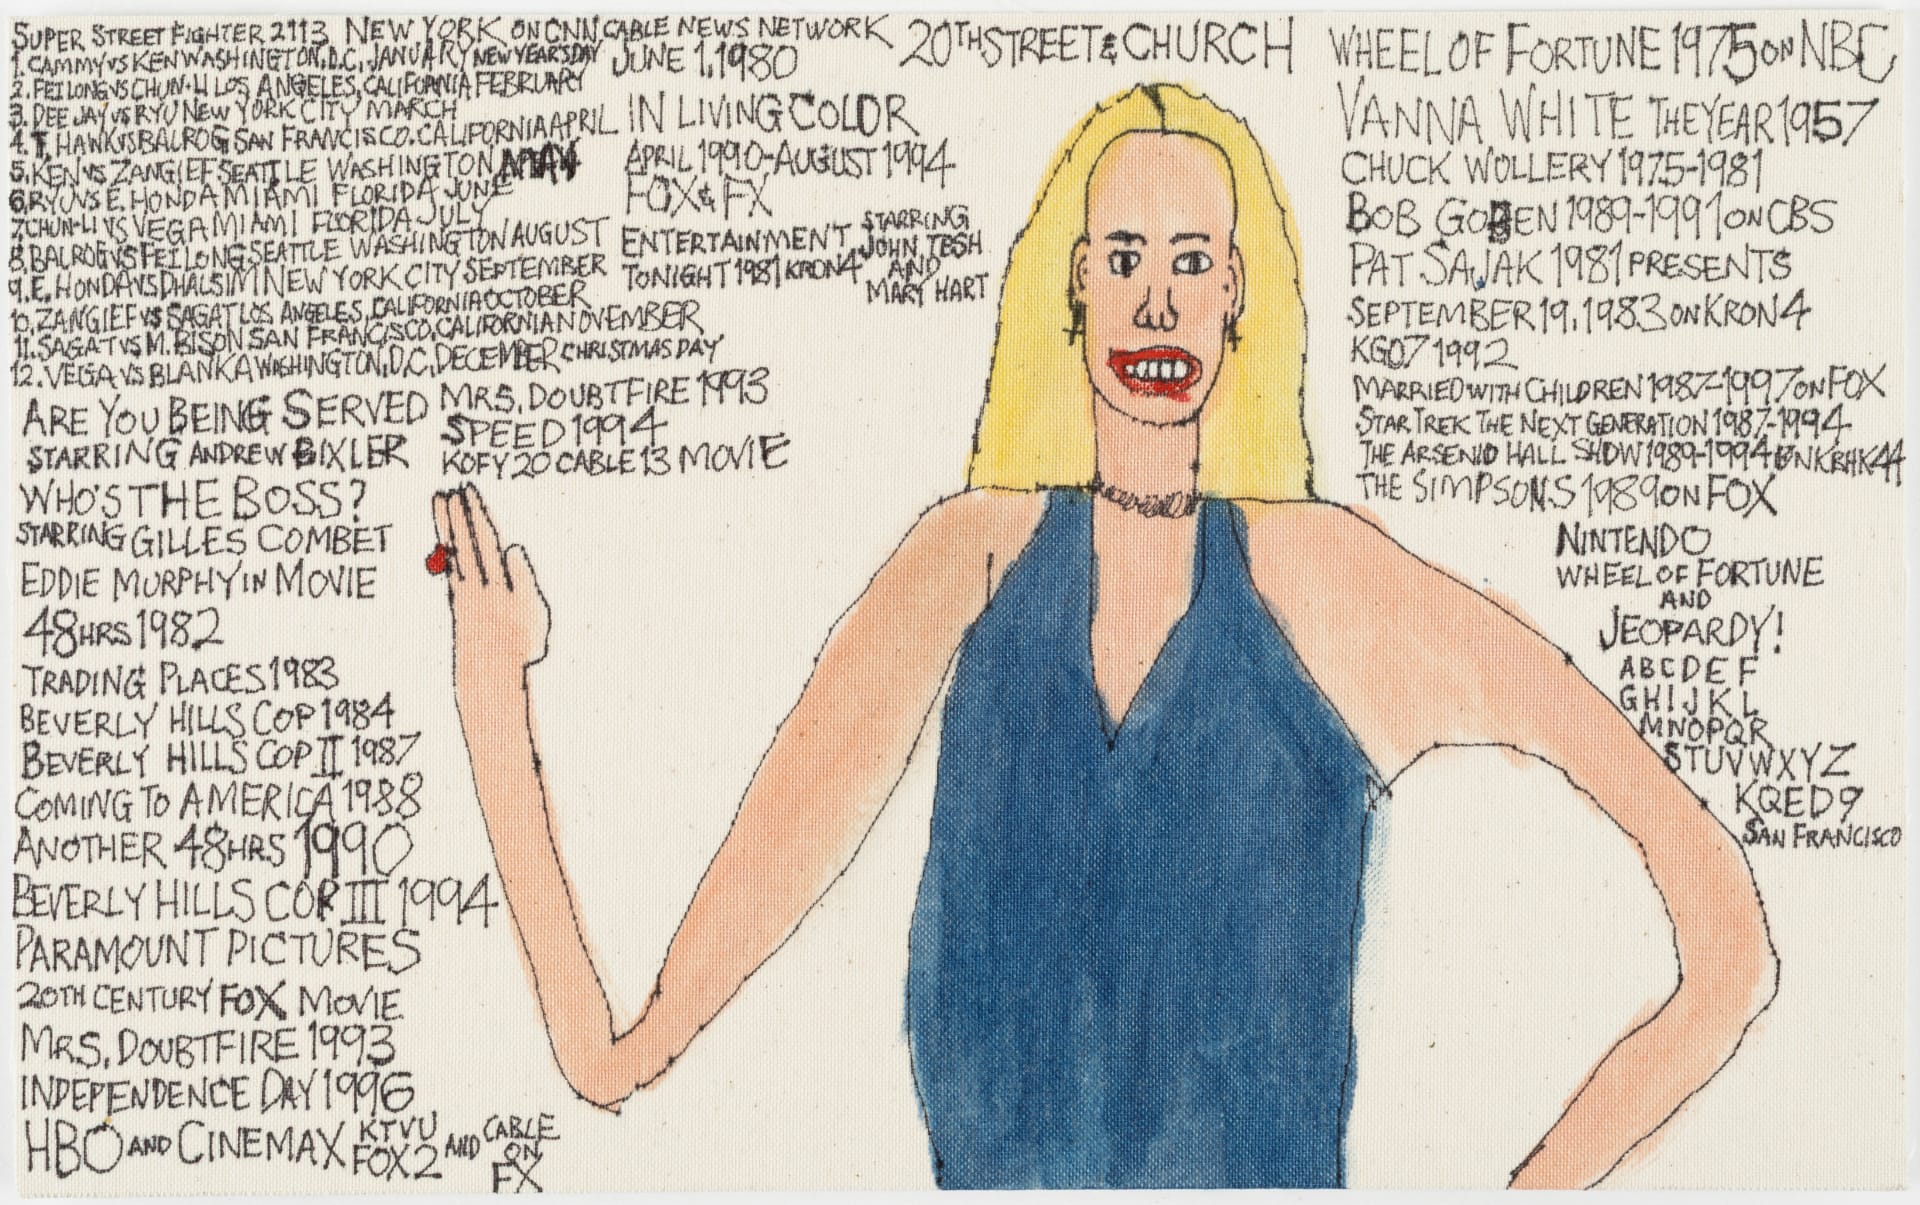 SUPER STREET FIGHTER 2113 NEW YORK ON CNN CABLE NEWS NETWORK
JUNE 1, 1980
1. CAMMY VS KEN WASHINGTON, D.C, JANUARY NEW YEAR'S DAY
2. FEI LONG VS CHUN-LI LOS ANGELES, CALIFORNIA FEBRUARY
3. DEE JAY VS RYU NEW YORK CITY MARCH
4. T. HAWK VS BALROG SAN FRANCISCO, CALIFORNIA APRIL
5. KEN VS ZANGIEF SEATTLE WASHINGTON MAY
6. RYU VS E. HONDA MIAMI FLORIDA JUNE
7. CHUN-LI VS VEGA MIAMI FLORIDA JULY
8. BALROG VS FEI LONG SEATTLE WASHINGTON AUGUST
9. E. HONDA VS DHALSIM NEW YORK CITY SEPTEMBER
10. ZANGIEF VS SAGAT LOS ANGELES, CALIFORNIA OCTOBER
11. SAGAT VS M. BISON SAN FRANCISCO, CALIFORNIA NOVEMBER
12. VEGA VS BLANKA WASHINGTON, D.C, DECEMBER CHRISTMAS DAY
IN LIVING COLOR
APRIL 1990-AUGUST 1994
FOX & FX
ENTERTAINMENT
TONIGHT 1981 KRON 4
STARRING
JOHN TESH
AND
MARY HART
ARE YOU BEING SERVED
STARRING ANDREW BIXLER
MRS. DOUBTFIRE 1993
SPEED 1994
KOFY 20 CABLE 13 MOVIE
WHO'S THE BOSS?
STARRING GILLES COMBET
EDDIE MURPHY IN MOVIE
48 HRS 1982
TRADING PLACES 1983
BEVERLY HILLS COP 1984
BEVERLY HILLS COP II 1987
COMING TO AMERICA 1988
ANOTHER 48 HRS 1990
BEVERLY HILLS COP III 1994
PARAMOUNT PICTURES
20TH CENTURY FOX MOVIE
MRS. DOUBTFIRE 1993
INDEPENDENCE DAY 1996
HBO AND CINEMAX KTVU FOX 2 AND CABLE ON FX
20TH STREET & CHURCH
WHEEL OF FORTUNE 1975 ON NBC
VANNA WHITE THE YEAR 1957
CHUCK WOLLERY 1975-1981
BOB GOEN 1989-1991 ON CBS
PAT SAJAK 1981 PRESENTS
SEPTEMBER 19, 1983 ON KRON 4
KGO 7 1992
MARRIED WITH CHILDREN 1987-1997 ON FOX
STAR TREK THE NEXT GENERATION 1987-1994
THE ARSENIO HALL SHOW 1989-1994 ON KBHK 44
THE SIMPSONS 1989 ON FOX
NINTENDO
WHEEL OF FORTUNE
AND
JEOPARDY!
ABCDEF
GHIJKL
MNOPQR
STUVWXYZ
KQED 9
SAN FRANCISCO